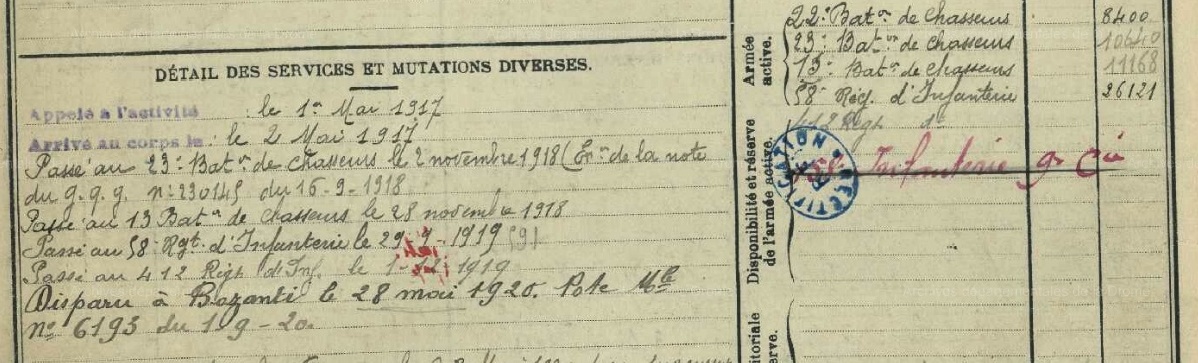 DÉTAIL DES SERVICES ET MUTATIONS DIVERSES.
Appelé à l'activité : le 1er Mai 1917
Arrivé au corps le : le 2 Mai 1917
Passé au 23e Baton de Chasseurs le 2 novembre 1918 (Eon de la note
du g.q.g. no 230145 du 16-9-1918
Passé au 13 Baton de Chasseurs le 28 novembre 1918
Passé au 58e Rgt. d'Infanterie le 29 1919
Passé au 412 Régt d'Inf. le 1- 1919
Disparu à Bozanti le 28 mai 1920. Note Mle
no 6193 du 1-9-20.
Armée active.
22e Baton de Chasseurs 8400
23e Baton de Chasseurs 10640
13e Baton de Chasseurs 11168
58e Rég. d'Infanterie 26121
Disponibilité et réserve de l'armée active.
412 Régt do
Infanterie 9e Cie
itoriale
serve.